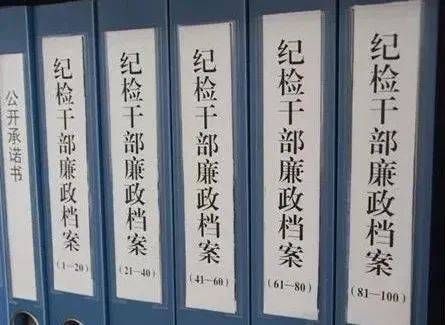 公开承诺书
纪检干部廉政档案
(1—20)
纪检干部廉政档案
(21—40)
纪检干部廉政档案
(41—60)
纪检干部廉政档案
(61—80)
纪检干部廉政档案
(81—100)